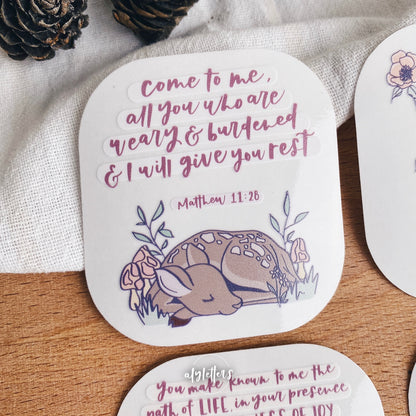 Come to me,
all you who are
weary & burdened
& I will give you rest
Matthew 11:28
afyletters
You make known to me the
path of LIFE in your presence
NESS OF JOY